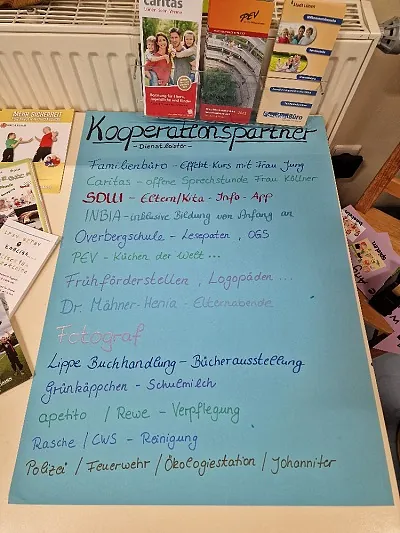 Caritas
Beratung für Eltern,
Jugendliche und Kinder
PEV
Stadt Lünen
Familienbüro
MEHR SICHERHEIT
Kooperationspartner
- Dienstleister -
Familienbüro - Effekt Kurs mit Frau Jung
Caritas - offene Sprechstunde Frau Köllner
SDUI - Eltern/Kita - Info - App
INBIA - inklusive Bildung von Anfang an
Overbergschule - Lesepaten, OGS
PEV - Küchen der Welt ...
Frühförderstellen, Logopäden ...
Dr. Mähner-Henia - Elternabende
Fotograf
Lippe Buchhandlung - Bücherausstellung
Grünkäppchen - Schulmilch
apetito / Rewe - Verpflegung
Rasche / CWS - Reinigung
Polizei / Feuerwehr / Ökologiestation / Johanniter